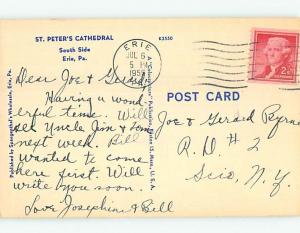 ST. PETER'S CATHEDRAL
South Side
Erie, Pa.
K3550
ERIE
JUL 6
5 PM
PA.
2¢
Dear Joe &
Having a wond
erful time. Will
see Uncle Jim & fam
next week. Bill
wanted to come
here first. Will
write you soon.
Love Josephine & Bill
POST CARD
Joe & Gerard Byrne
R.D. # 2
Scio, N.Y.